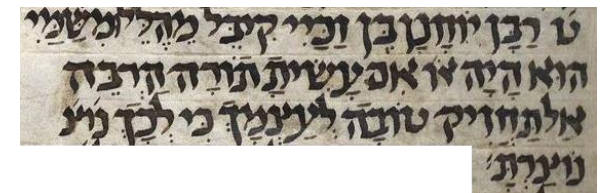 ט רַבָּן יוֹחָנָן בֶּן זַכַּיי קִיבֵּל מֶהִלֵּל וּמִשַּׁמַּיי
הוּא הָיָה או אִם עָשִׂיתָ תוֹרָה הַרְבֵּה
אַל תַּחֲזִיק טוֹבָה לְעַצְמָךְ כִּי לְכָךְ נוֹצ
נוֹצַרְתָּ׃